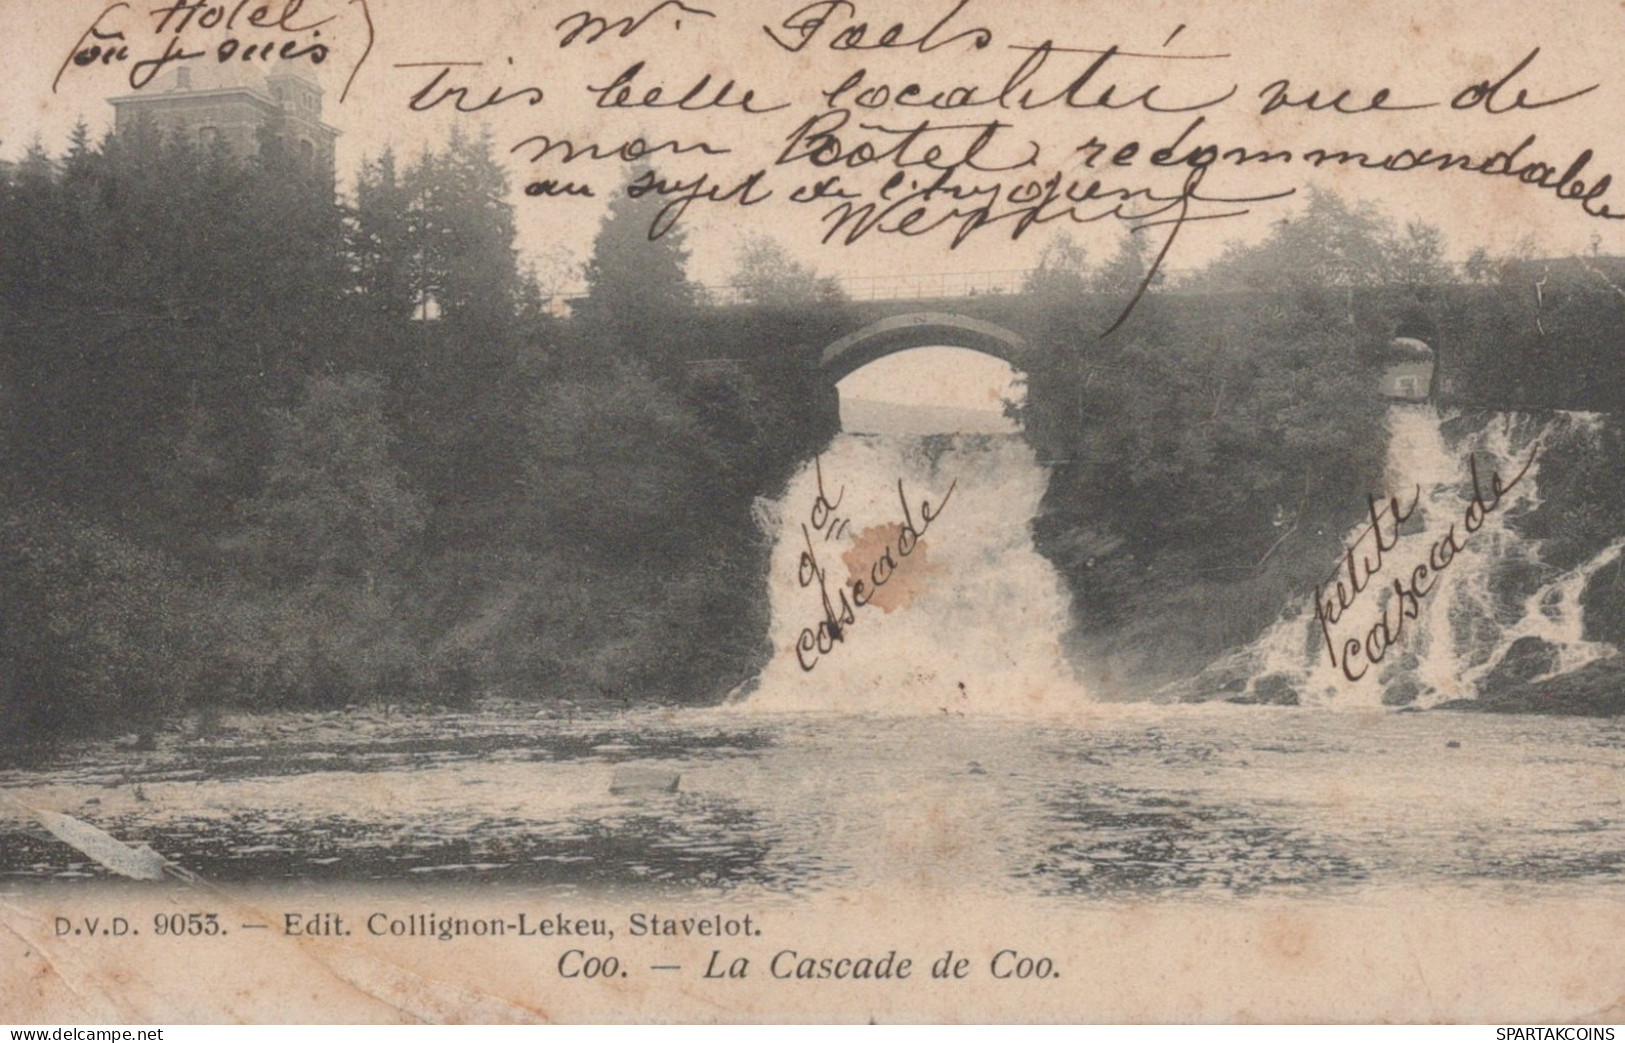 Hotel
où je suis
Mr.
très belle localité vue de
mon Hôtel recommandable
au sujet de l'hygiène
gd
cascade
petite
cascade
D.V.D. 9053. — Edit. Collignon-Lekeu, Stavelot.
Coo. — La Cascade de Coo.
https://www.delcampe.net
SPARTAKCOINS